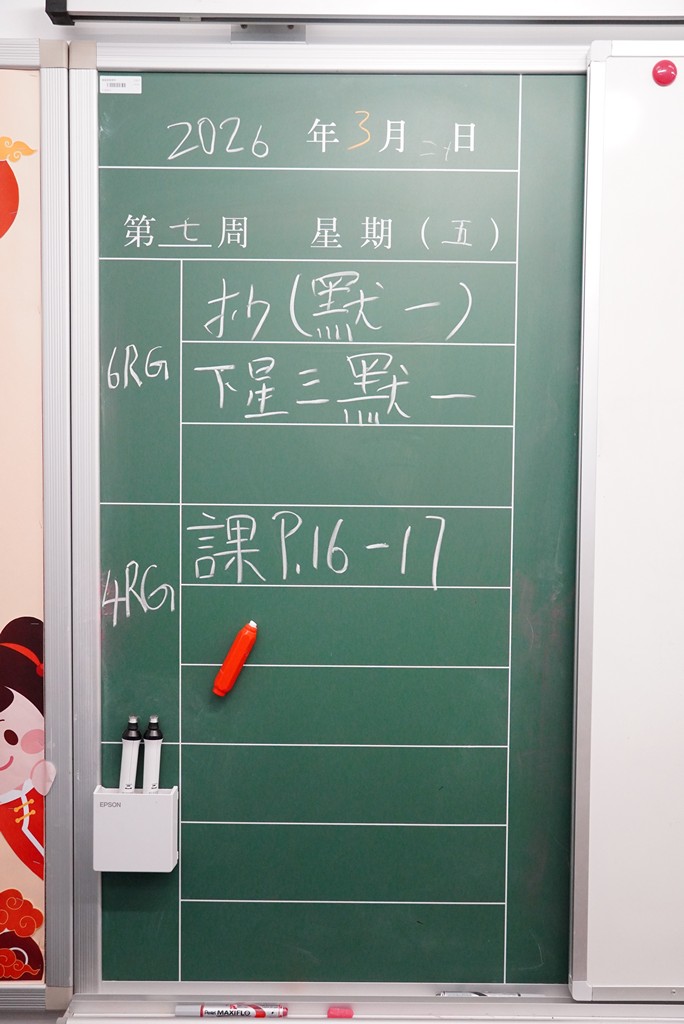 2026 年 3 月 二 日
第 七 周 星 期 ( 五 )
6RG
抄(默一)
下星三默一
4RG
課P.16-17
EPSON
Pentel MAXIFLO